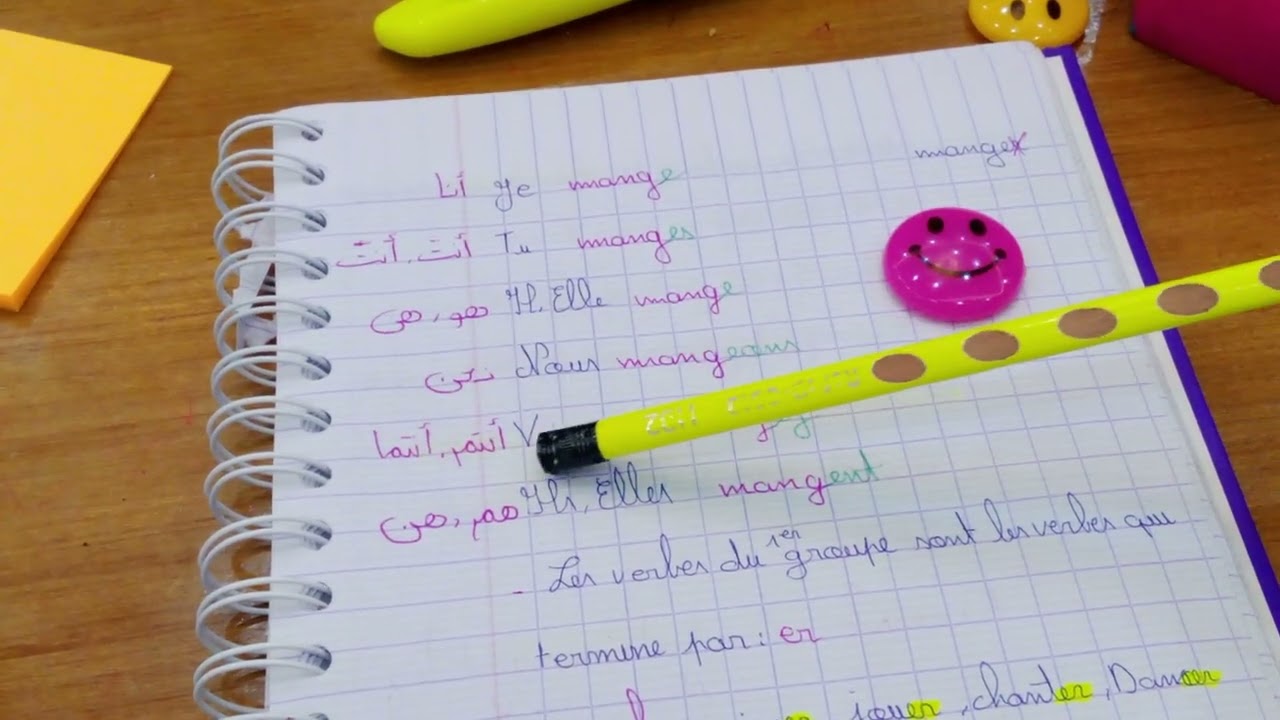 manger
أنا Je mange
أنتَ، أنتِ Tu manges
هو، هي Il, Elle mange
نحن Nous mangeons
أنتم، أنتما V
هم، هن Ils, Elles mangent
- Les verbes du 1er groupe sont les verbes qui
termine par : er
jouer, chanter, Danser